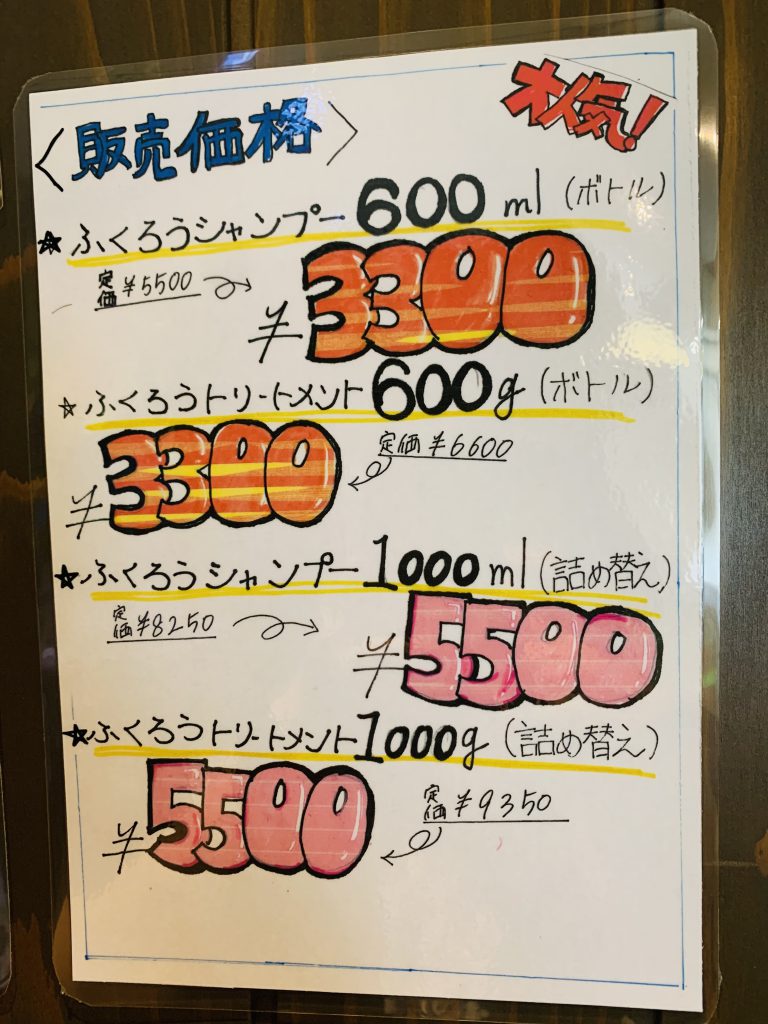 〈販売価格〉
大人気!
★ふくろうシャンプー 600ml (ボトル)
定価 ¥5500
¥3300
☆ふくろうトリートメント 600g (ボトル)
定価 ¥6600
¥3300
★ふくろうシャンプー 1000ml (詰め替え)
定価 ¥8250
¥5500
★ふくろうトリートメント 1000g (詰め替え)
定価 ¥9350
¥5500